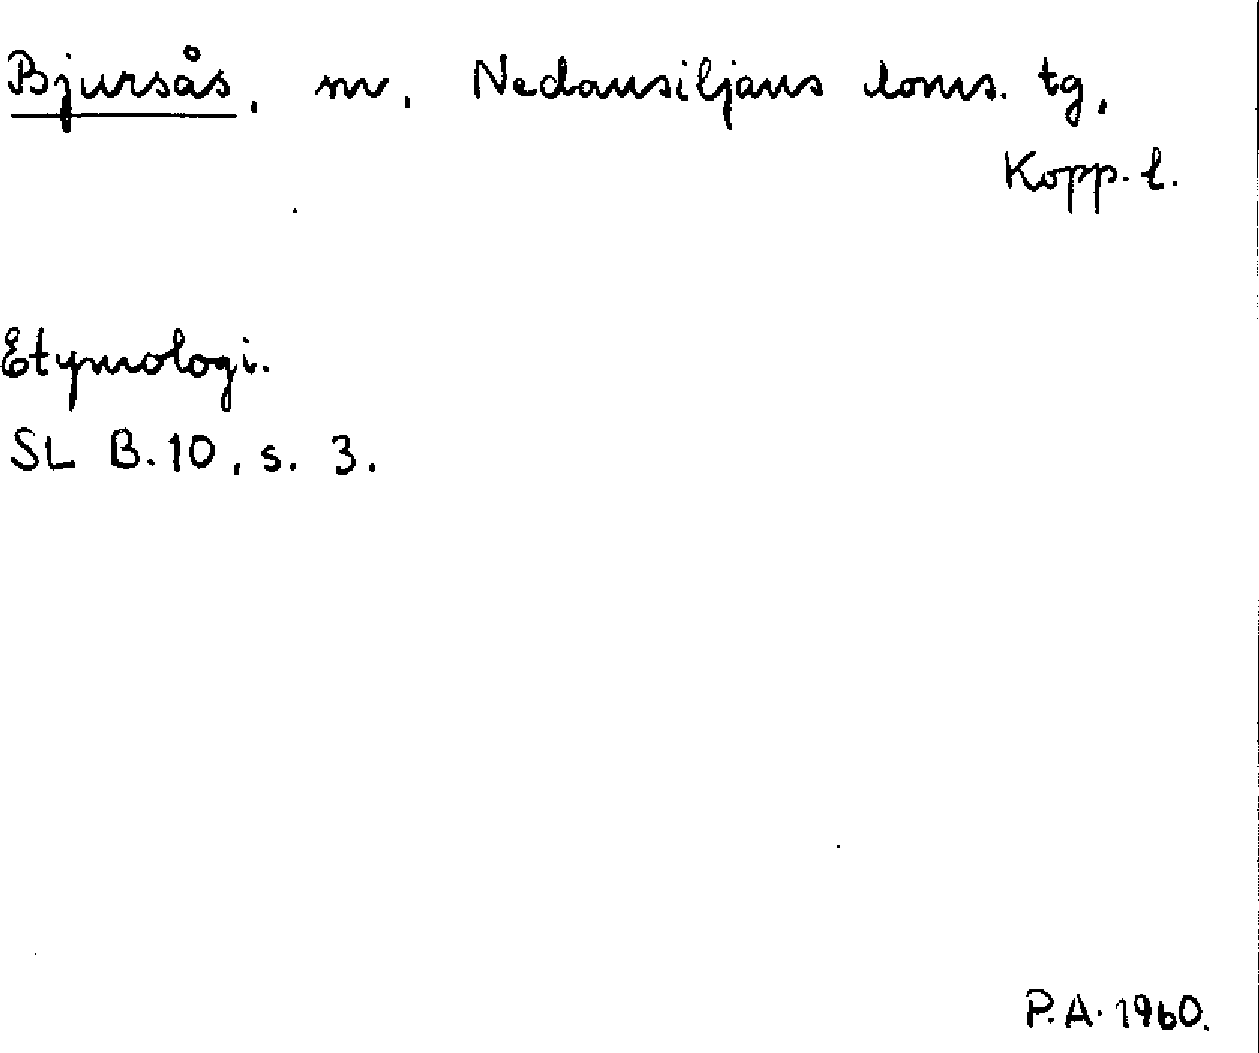 Bjursås, sn, Nedansiljans doms. tg,
Kopp. l.
Etymologi.
SL B.10, s. 3.
P.A. 1960.